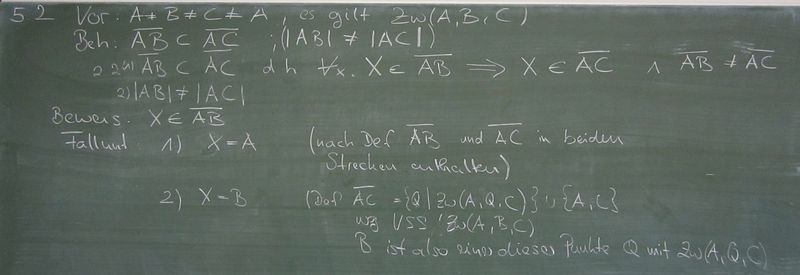 5.2 Vor: A ≠ B ≠ C ≠ A, es gilt Zw(A,B,C)
Beh: \overline{AB} ⊂ \overline{AC} ; (|AB| ≠ |AC|)
z z 1) \overline{AB} ⊂ \overline{AC} d h ∀x. X ∈ \overline{AB} ⟹ X ∈ \overline{AC} ∧ \overline{AB} ≠ \overline{AC}
2) |AB| ≠ |AC|
Beweis: X ∈ \overline{AB}
Fallunt: 1) X = A (nach Def \overline{AB} und \overline{AC} in beiden
Strecken enthalten)
2) X = B (Def \overline{AC} = {Q | Zw(A,Q,C)} ∪ {A,C}
wg VSS Zw(A,B,C)
B ist also einer dieser Punkte Q mit Zw(A,Q,C)